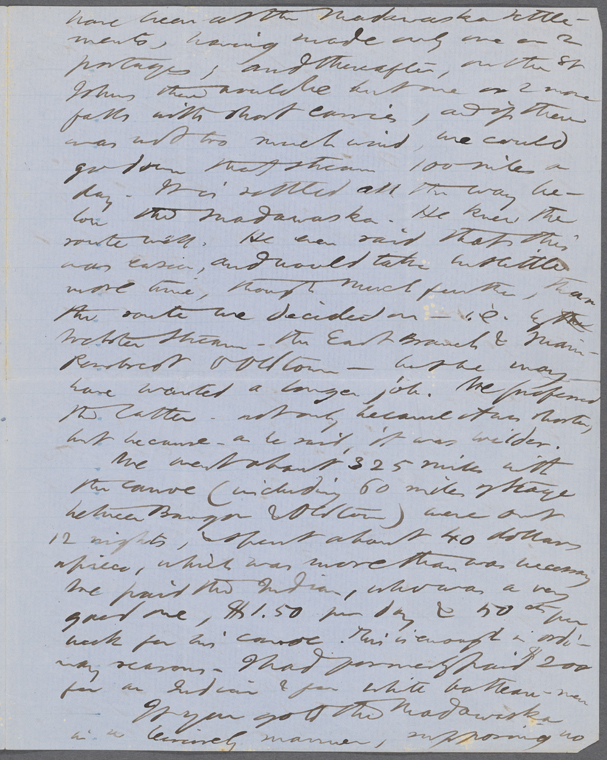 have been at the Madawaska Settle-
ments, having made only one or 2
portages; and thereafter, on the St
Johns there would be but one or 2 more
falls with short carries, and if there
was not too much wind, we could
go down that stream 100 miles a
day. It is settled all the way be-
low the Madawaska. He knew the
route well. He even said that this
was easier, and would take but little
more time, though much farther, than
the route we decided on — i.e. by the
Webster Stream — the East Branch & Main-
Penobscot to Oldtown — but he may
have wanted a longer job. We preferred
the latter — not only because it was shorter,
but because — as he said, it was wilder.
We went about 325 miles with
the canoe (including 60 miles of stage
between Bangor & Oldtown) were out
12 nights, & spent about 40 dollars
apiece, which was more than was necessary
We paid the Indian, who was a very
good one, $1.50 per day & 50 cts per
week for his canoe. This is enough in ordi-
nary seasons — I had formerly paid $2.00
for an Indian & for white batteau-men
If you go to the Madawaska
in a leisurely manner, supposing no